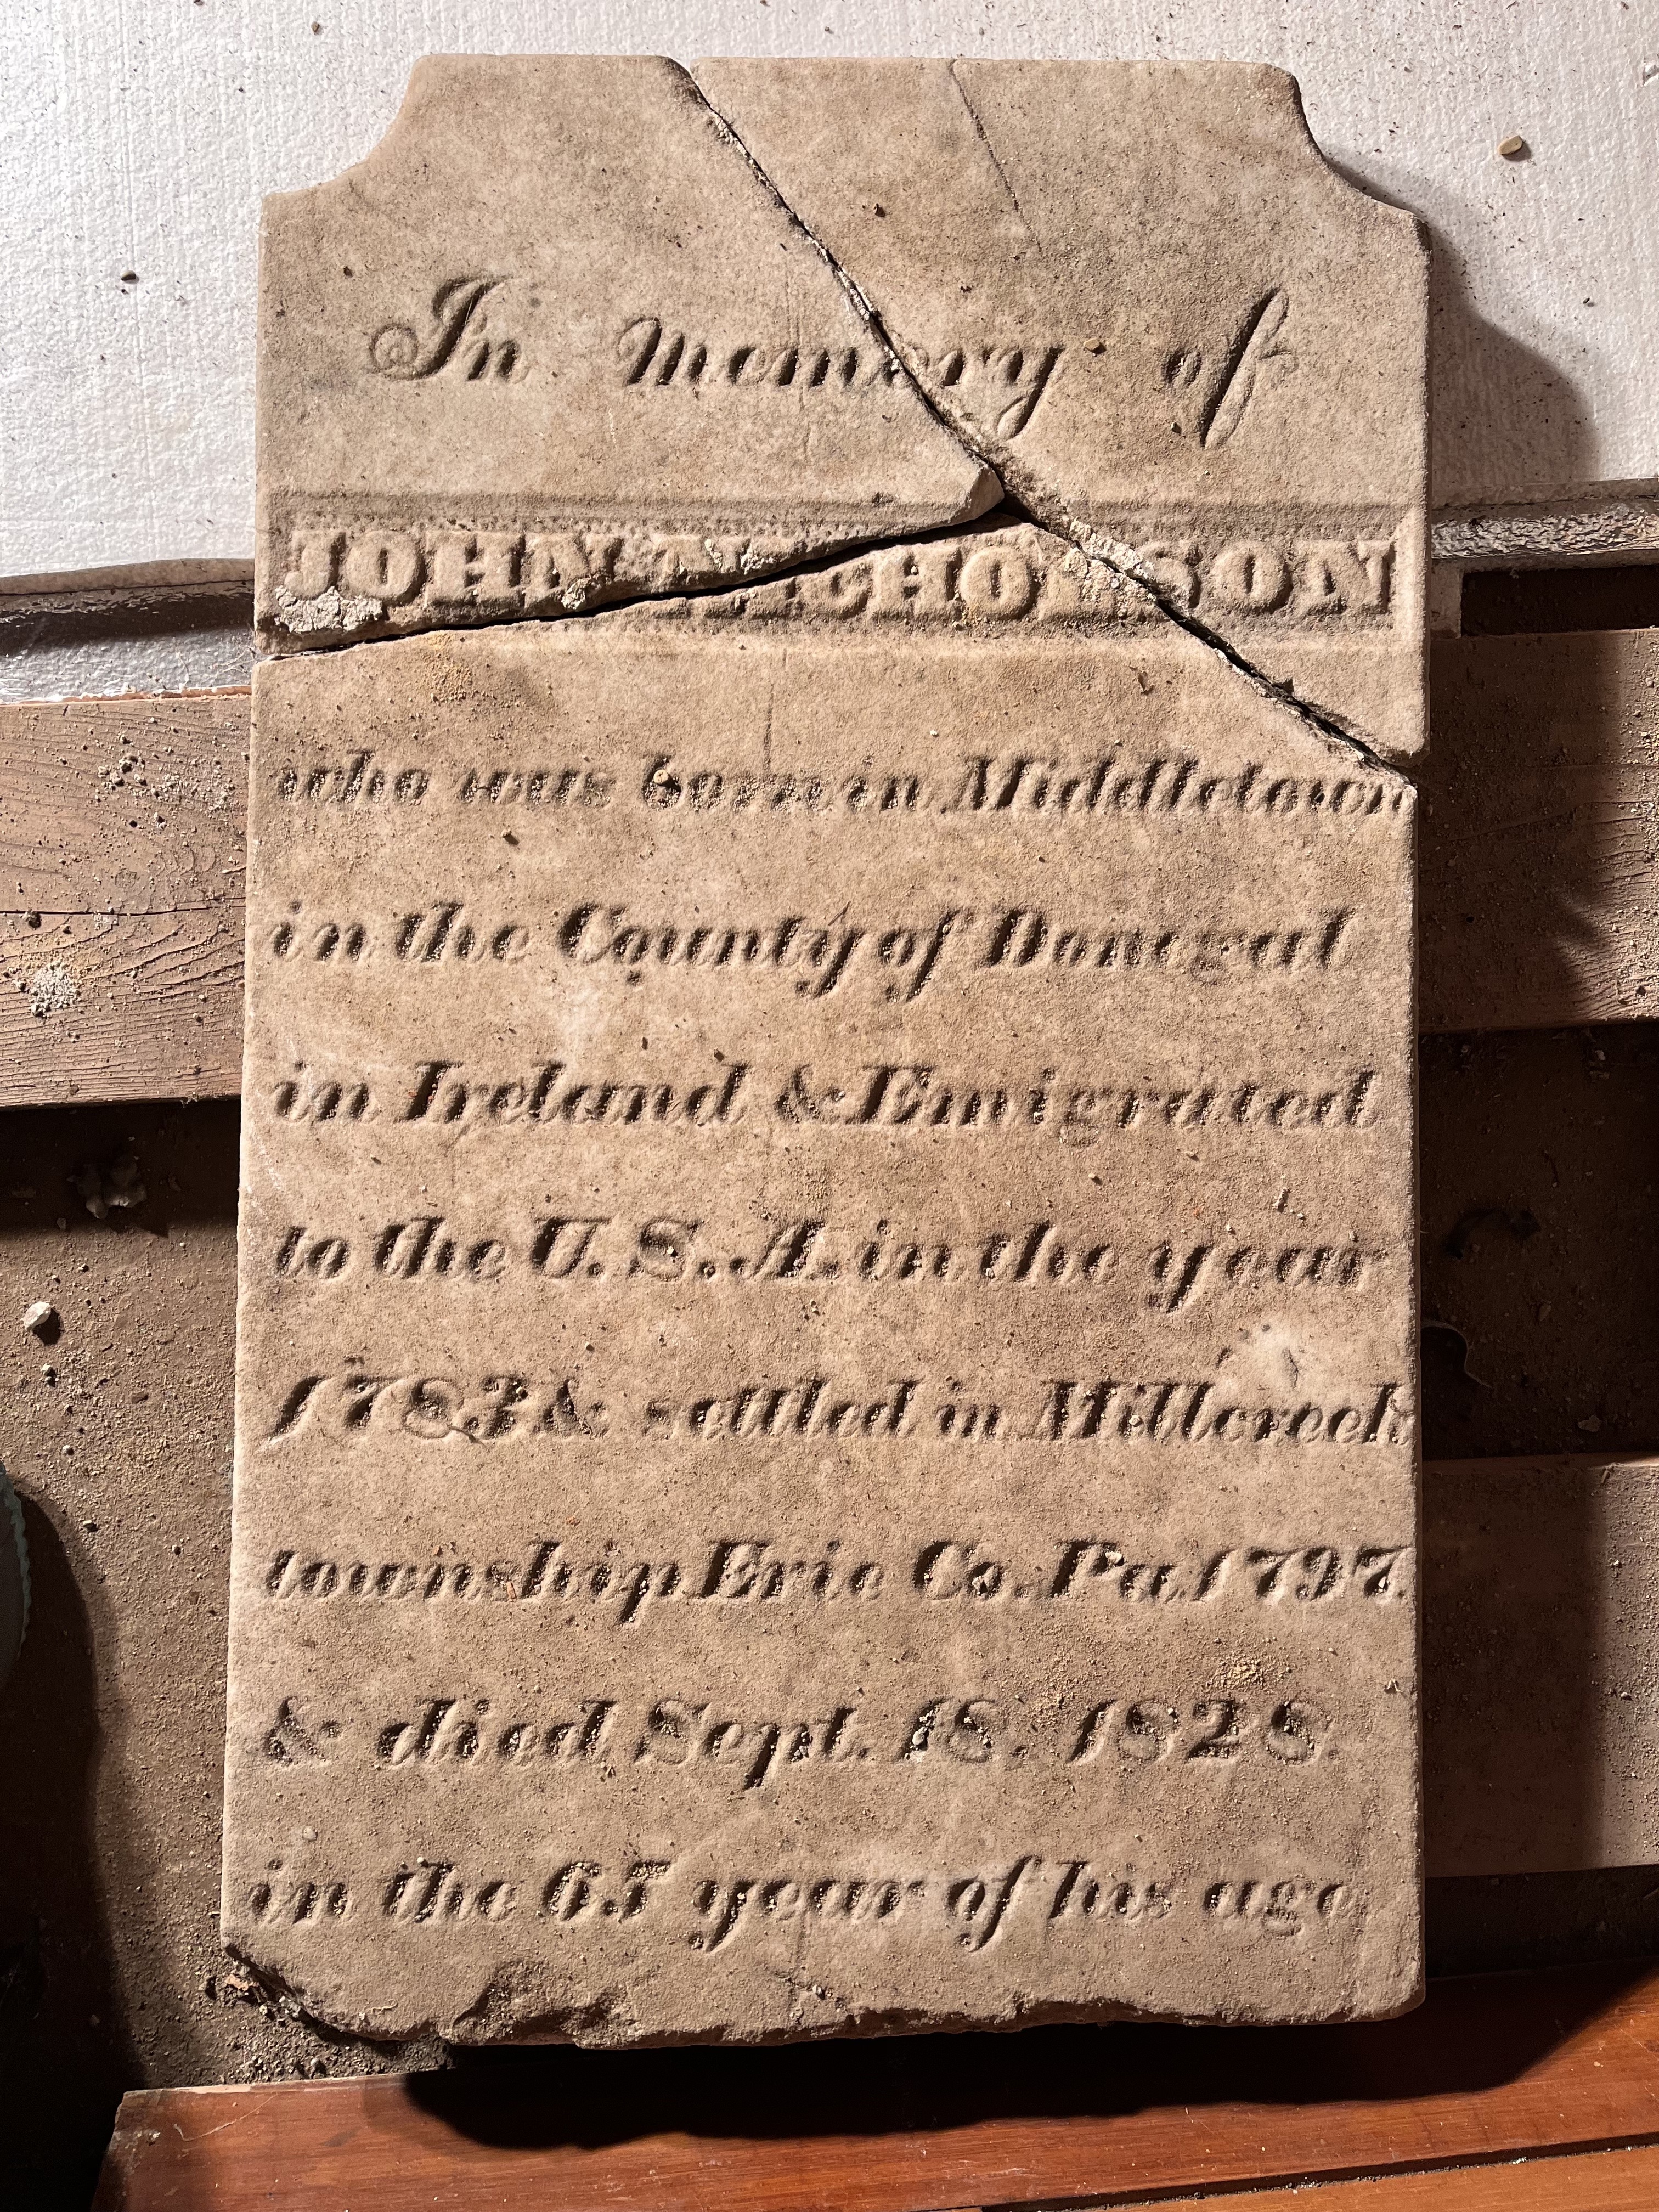 In memory of
JOHN NICHOLSON
who was born in Middletown
in the County of Donegal
in Ireland & Emigrated
to the U. S. A. in the year
1783 & settled in Millcreek
township Erie Co. Pa. 1797.
& died Sept. 18. 1828.
in the 65 year of his age